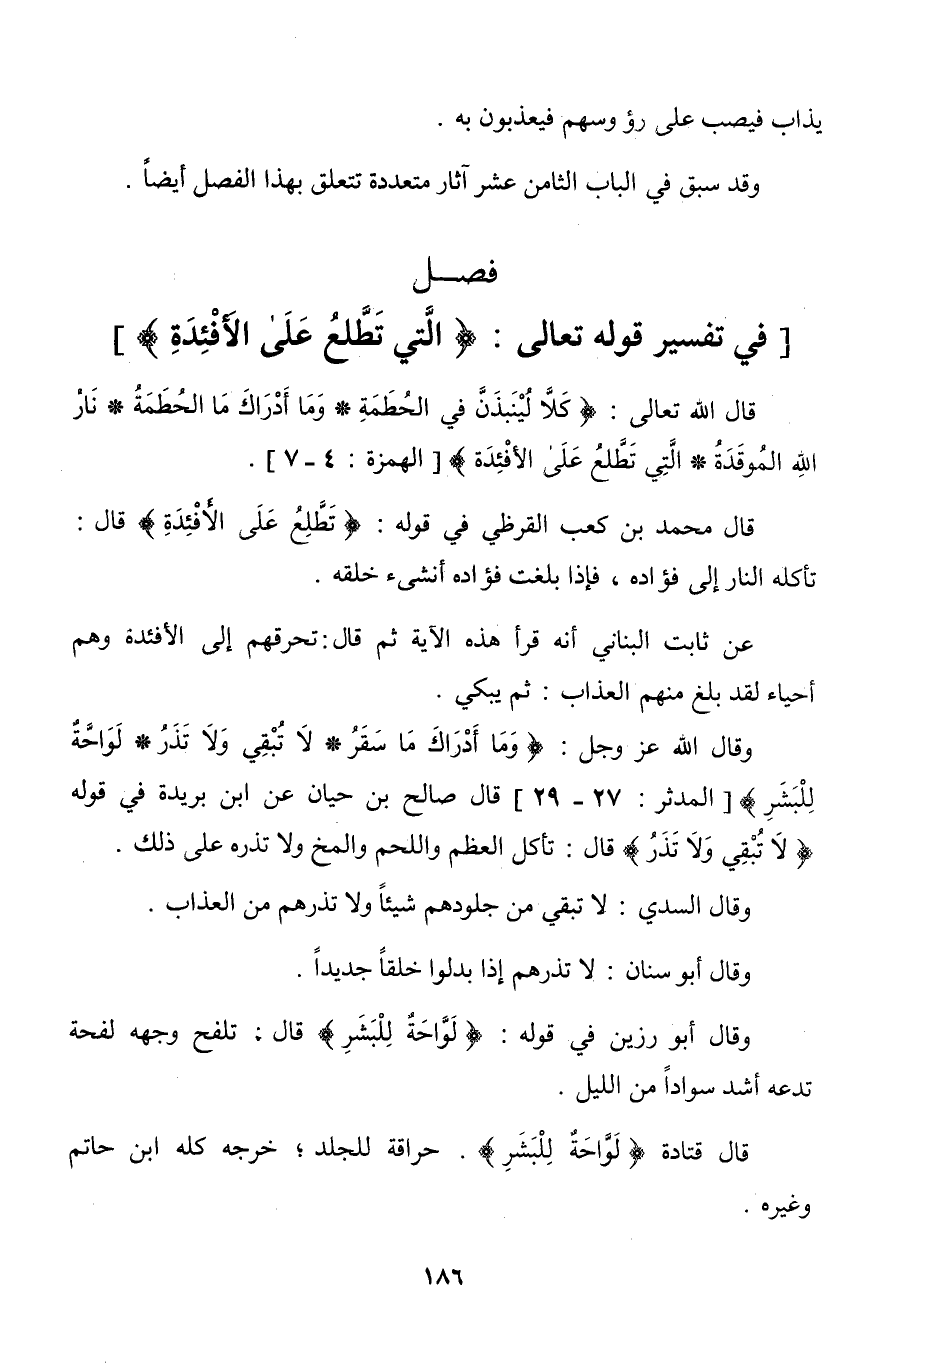 يذاب فيصب على رؤ وسهم فيعذبون به .
وقد سبق في الباب الثامن عشر آثار متعددة تتعلق بهذا الفصل أيضاً .
فصـــل
[ في تفسير قوله تعالى : ﴿ الَّتي تَطَّلعُ عَلَىٰ الأَفْئِدَةِ ﴾ ]
قال الله تعالى : ﴿ كَلَّا لَيُنْبَذَنَّ في الحُطَمَةِ * وَمَا أَدْرَاكَ مَا الحُطَمَةُ * نَارُ
اللهِ المُوقَدَةُ * الَّتِي تَطَّلعُ عَلَىٰ الأَفْئِدَة ﴾ [ الهمزة : ٤ ـ ٧ ] .
قال محمد بن كعب القرظي في قوله : ﴿ تَطَّلِعُ عَلَى الأَفْئِدَةِ ﴾ قال :
تأكله النار إلى فؤ اده ، فإذا بلغت فؤ اده أنشىء خلقه .
عن ثابت البناني أنه قرأ هذه الآية ثم قال : تحرقهم إلى الأفئدة وهم
أحياء لقد بلغ منهم العذاب : ثم يبكي .
وقال الله عز وجل : ﴿ وَمَا أَدْرَاكَ مَا سَقَرُ * لَا تُبْقِي وَلَا تَذَرُ * لَوَاحَّةٌ
لِلْبَشَرِ ﴾ [ المدثر : ٢٧ ـ ٢٩ ] قال صالح بن حيان عن ابن بريدة في قوله
﴿ لَا تُبْقِي وَلَا تَذَرُ ﴾ قال : تأكل العظم واللحم والمخ ولا تذره على ذلك .
وقال السدي : لا تبقي من جلودهم شيئاً ولا تذرهم من العذاب .
وقال أبو سنان : لا تذرهم إذا بدلوا خلقاً جديداً .
وقال أبو رزين في قوله : ﴿ لَوَّاحَةٌ لِلْبَشَرِ ﴾ قال : تلفح وجهه لفحة
تدعه أشد سواداً من الليل .
قال قتادة ﴿ لَوَّاحَةٌ لِلْبَشَرِ ﴾ . حراقة للجلد ؛ خرجه كله ابن حاتم
وغيره .
١٨٦